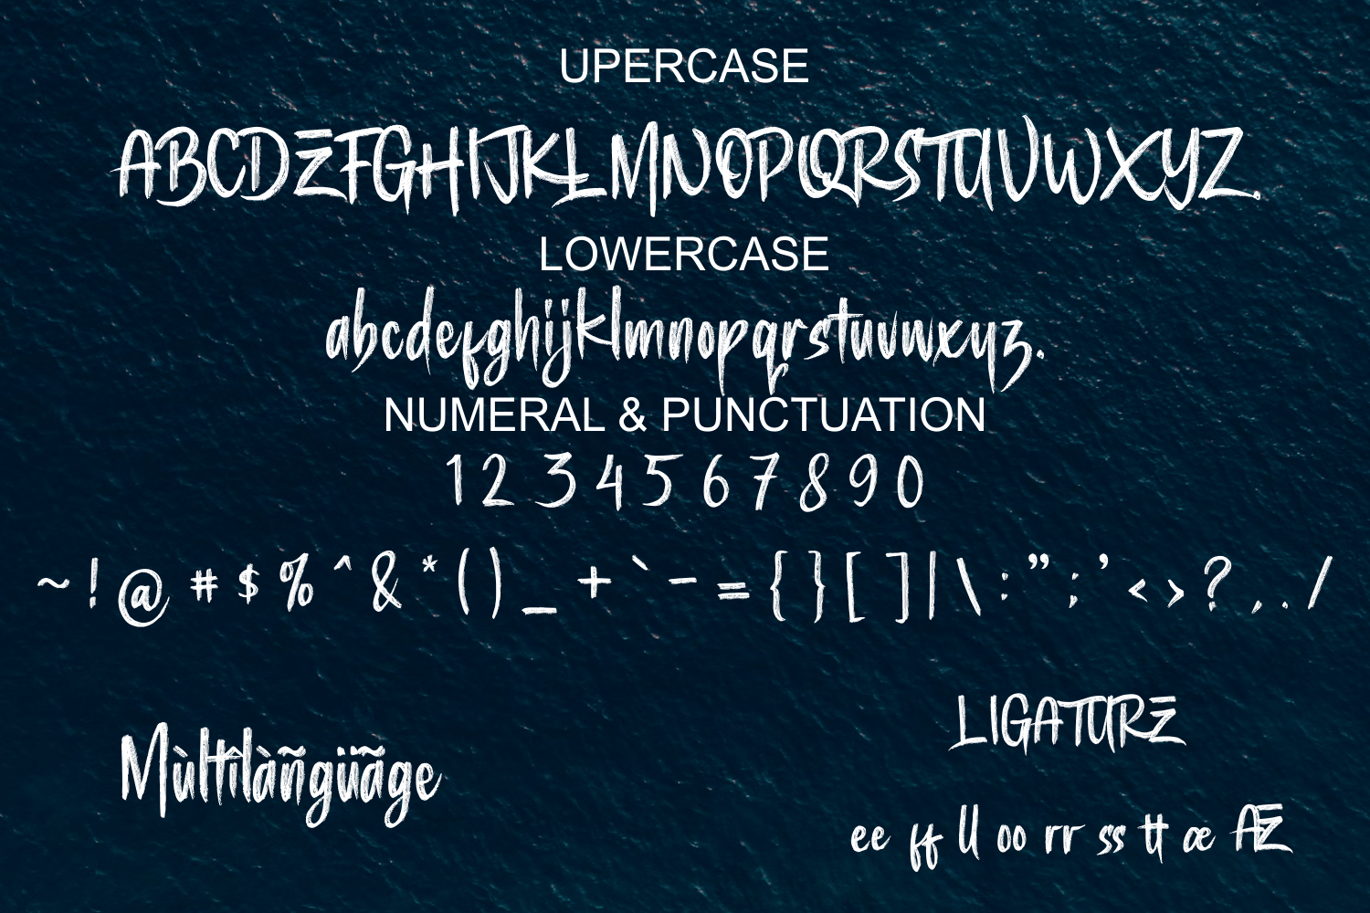 UPERCASE
ABCDEFGHIJKLMNOPQRSTUVWXYZ.
LOWERCASE
abcdefghijklmnopqrstuvwxyz.
NUMERAL & PUNCTUATION
1 2 3 4 5 6 7 8 9 0
~ ! @ # $ % ^ & * ( ) _ + ` - = { } [ ] | \ : ” ; ’ < > ? , . /
LIGATURE
Mùltîlàñgüãge
ee ff ll oo rr ss tt æ Æ